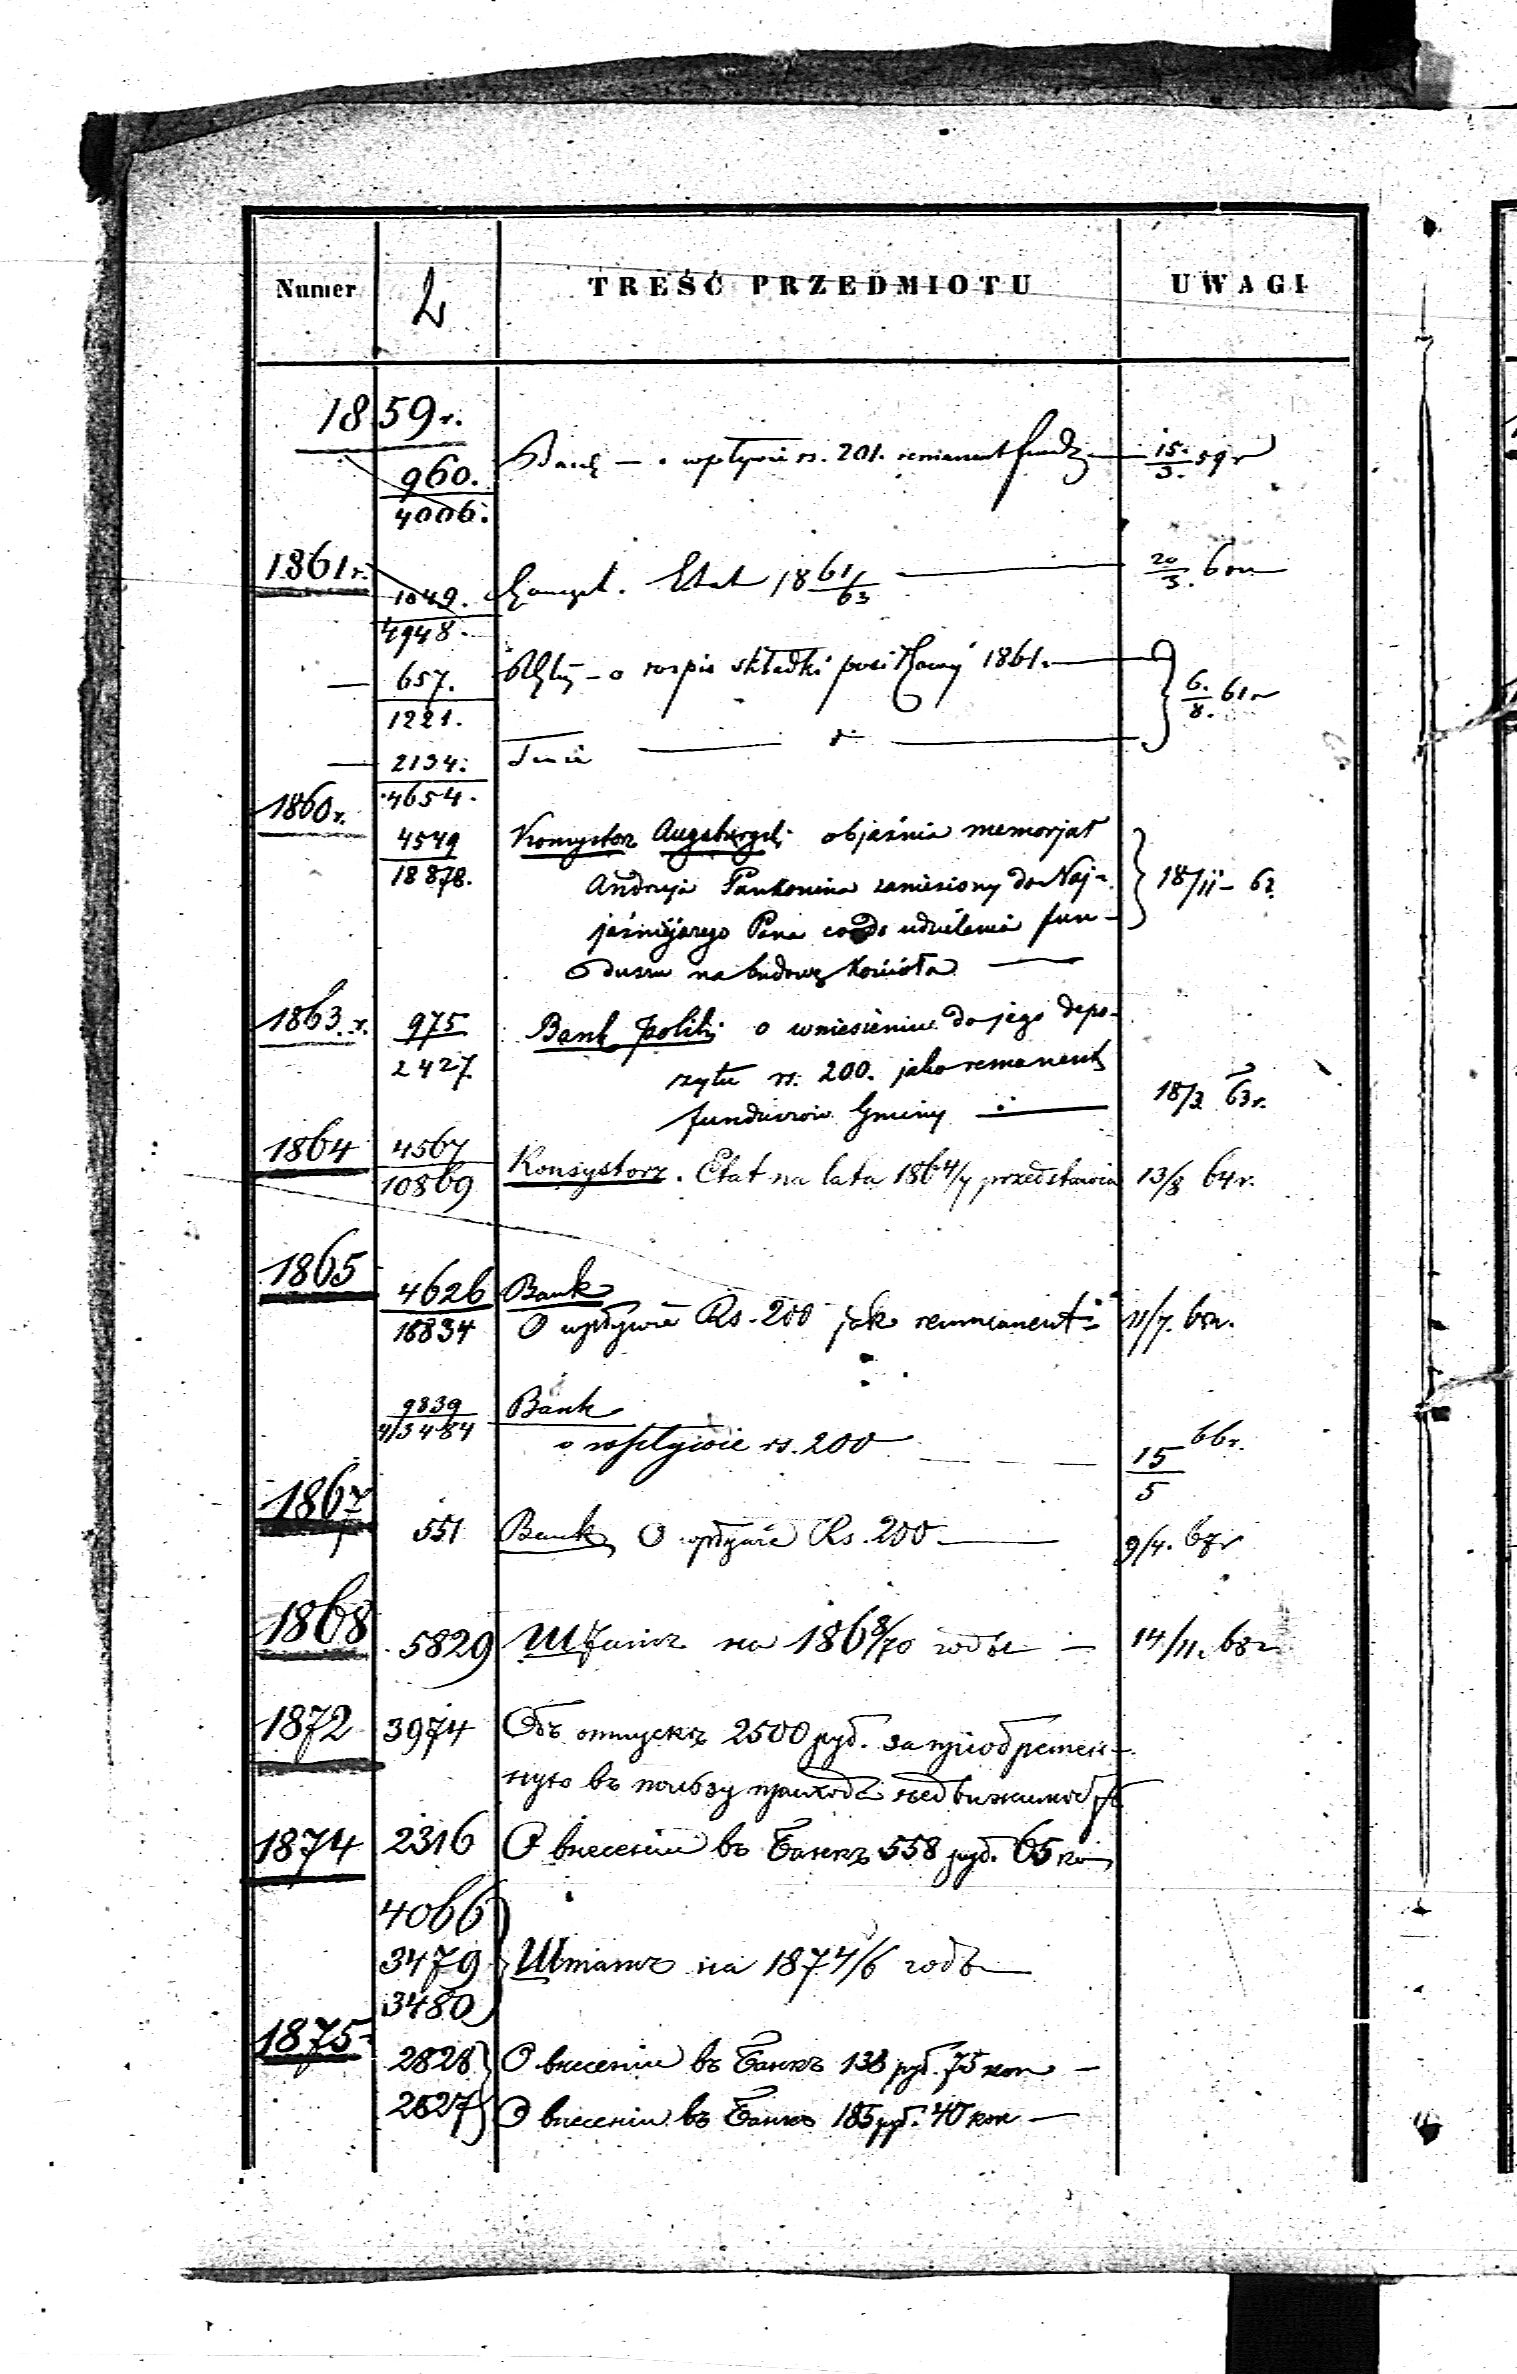 Numer L TREŚĆ PRZEDMIOTU UWAGI
1859r.
960. Bank — o wpływie rs. 201. remanent fundz. — 15./3. 59r
4006.
1861r. 1049. Etat 1861/63 — 20/3. 60r
4948.
— 657. — o rozpis składki 1861. — 6./8. 61r
1221.
— 2134. — d° —
4654.
1860r.
4549 Konsystor Augsburgski objaśnia memorjał
18878. Andrzeja Pankonina zaniesiony do Naj- 18/11 – 62
jaśniejszego Pana co do udzielenia fun-
duszu na budowę Kościoła —
1863.r. 975 Bank polski o wniesieniu do jego depo-
2427. zytu rs. 200. jako remanent
funduszów Gminy — 18/3 63r.
1864 4567
10869 Konsystorz. Etat na lata 1864/7 przedstawia 13/8 64r.
1865 4626 Bank
16834 O wpływie Rs. 200 jak remmanent 11/7. 65r.
9839 Bank
4/3484 o wpływie rs. 200 — 15/5 66r.
1867 551 Bank O wpływie Rs. 200 — 9/4. 67r
1868 5829 Штатъ на 1868/70 годы — 14/11. 68r
1872 3974 Объ отпускѣ 2500 руб. за приобретен-
ную въ пользу прихода недвижимость
1874 2316 О внесеніи въ Банкъ 558 руб. 65 коп
4066
3479 Штатъ на 1874/6 годъ —
3480
1875
2828 О внесеніи въ Банкъ 133 руб. 75 коп —
2627 О внесеніи въ Банкъ 185 руб. 40 коп —